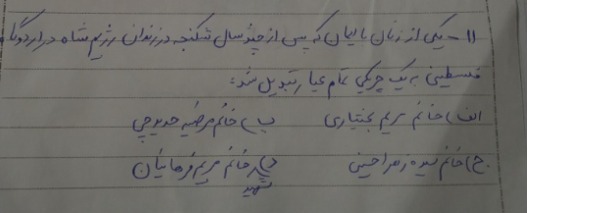 ۱۱- یکی از زنان با ایمان که پس از چند سال شکنجه در زندان رژیم شاه در اردوگاه
فلسطینی به یک چریک تمام عیار تبدیل شد:
الف) خانم مریم بختیاری ب) خانم مرضیه حدیدچی
ج) خانم سیده زهرا حسینی د) خانم مریم فرهانیان
شهید